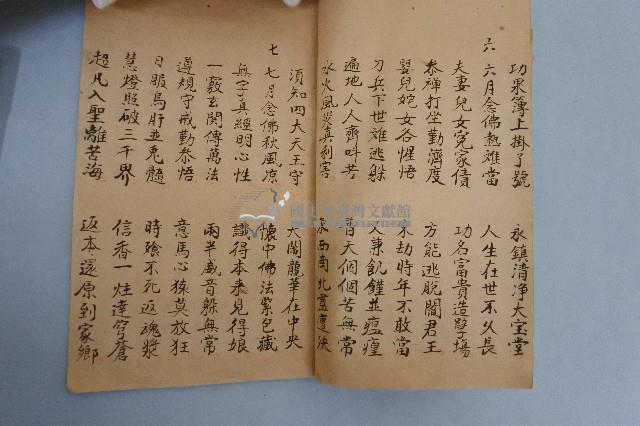 功果簿上掛了號 永鎮清淨大宝堂
六 六月念佛熱難當 人生在世不久長
夫妻兒女冤家債 功名富貴造孽場
參禅打坐勤濟度 方能逃脫閻君王
嬰兒姹女各惺悟 末劫時年不敢當
刀兵下世难逃躲 人兼飢饉並瘟瘟
遍地人人齊叫苦 天個個苦無常
水火風災真利害 東西南北盡遭殃
須知四大天王守 大開龍華在中央
七 七月念佛秋風凉 懷中佛法緊包藏
無字真經明心性 識得本來見得娘
一竅玄関傳萬法 兩半威音躲無常
遵規守戒勤參悟 意馬心猿莫放狂
日服烏肝並兎髓 時飱不死返魂漿
慧燈照破三千界 信香一炷達穹蒼
超凡入聖離苦海 返本还原到家鄉
國史館臺灣文獻館